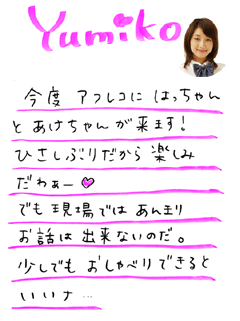 Yumiko
今度 アフレコに はっちゃん
と あけちゃんが来ます!
ひさしぶりだから 楽しみ
だわぁー
でも 現場では あんまり
お話は 出来ないのだ。
少しでも おしゃべりできると
いいナ…